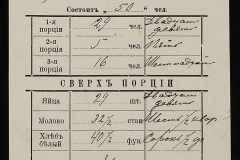 Состоитъ „ 50 “ чел.
1-я порція 29 чел. Двадцать девять
2-я порція 5 чел. Пять
3-я порція 16 чел. Шестнадцать
СВЕРХЪ ПОРЦІИ
Яйца 29 шт. девять
Молоко
Хлѣбъ бѣлый 40½ фун. Сорокъ ½ ф